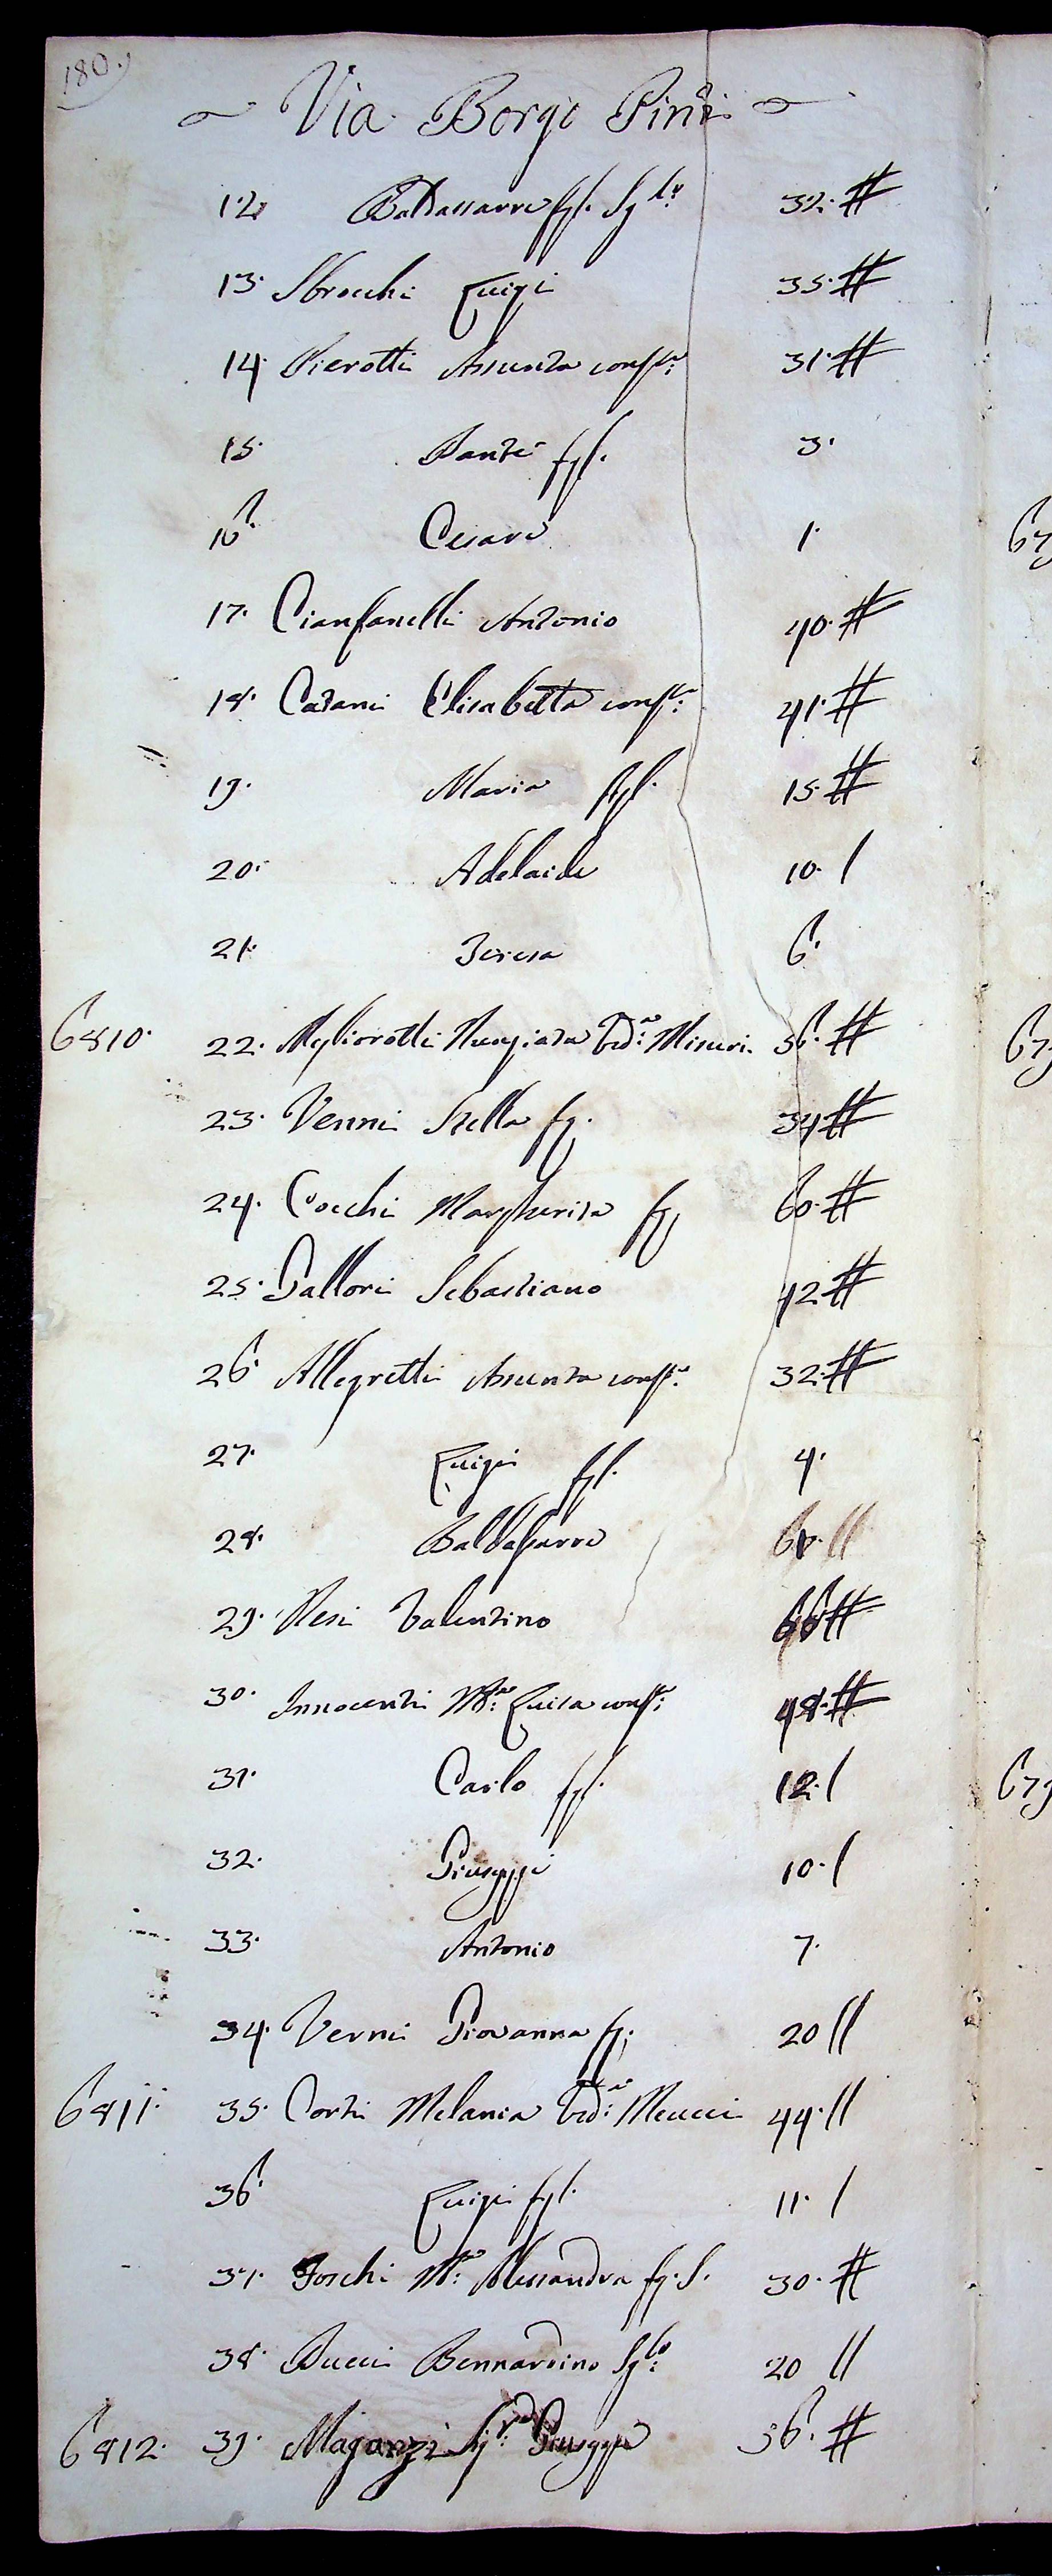 180.
Via Borgo Pinti
12. Baldassarre fgl. Sglo: 32. #
13. Sbrocchi Luigi 35. #
14. Pierotti Assunta conste: 31. #
15. Dante fgl. 3.
16. Cesare 1.
17. Cianfanelli Antonio 40. #
18. Catani Elisabetta conste: 41. #
19. Maria fgl. 15. #
20. Adelaide 10. /
21. Teresa 6.
6810. 22. Migliorotti Nunziata Vda: Misuri 56. #
23. Venni Stella fg. 34 #
24. Cocchi Margherita fg. 60. #
25. Gallori Sebastiano 42 #
26. Allegretti Assunta conste. 32. #
27. Luigi fgl. 4.
28. Baldassarre //
29. Nesi Valentino 66 #
30. Innocenti Ma: Luisa conste: 48. #
31. Carlo fgl. 12. /
32. Giuseppe 10. /
33. Antonio 7.
34. Verni Giovanna fg: 20 //
6811. 35. Corti Melania Vda: Meucci 44. //
36. Luigi fgl. 11. /
37. Foschi Ma: Alessandra fg. S. 30. #
38. Ducci Bennardino Sglo: 20 //
6812. 39. Maganzi Giuseppe 36. #
67
67
67